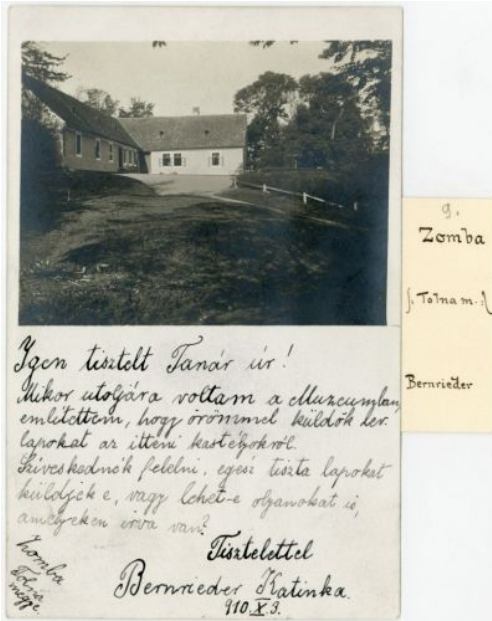 Igen tisztelt Tanár úr!
Mikor utoljára voltam a Muzeumban,
említettem, hogy örömmel küldök lev.
lapokat az itteni kastélyokról.
Szíveskednék felelni, egész tiszta lapokat
küldjek e, vagy lehet-e olyanokat is,
amelyeken irva van?
Tisztelettel
Bernrieder Katinka.
910.X.3.
Zomba
Tolna
megye.
9.
Zomba
(: Tolna m. :)
Bernrieder